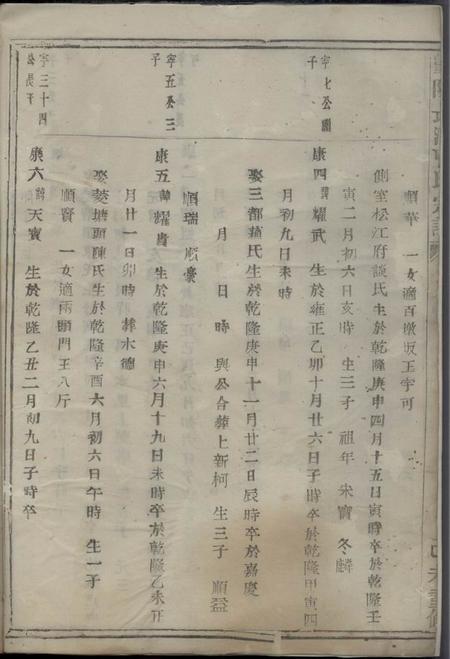 順華 一女適百墩坂王宇可
側室松江府談氏生於乾隆庚申四月十五日寅時卒於乾隆壬
寅二月初六日亥時 生三子 祖年 宋寶 冬麟
寧七公嗣子
康四諱耀武 生於雍正乙卯十月廿六日子時卒於乾隆甲寅四
月初九日未時
娶三都葛氏生於乾隆庚申十一月廿二日辰時卒於嘉慶
月 日 時 與公合葬上新柯 生三子 順益
順瑞 順豪
寧五公三子
康五諱耀貴 生於乾隆庚申六月十九日未時卒於乾隆乙未正
月廿一日卯時 葬水德
娶菱塘頭陳氏生於乾隆辛酉六月初六日午時 生一子
順寶 一女適兩頭門王八斤
寧三十四公長子
康六諱天寶 生於乾隆乙丑二月初九日子時卒